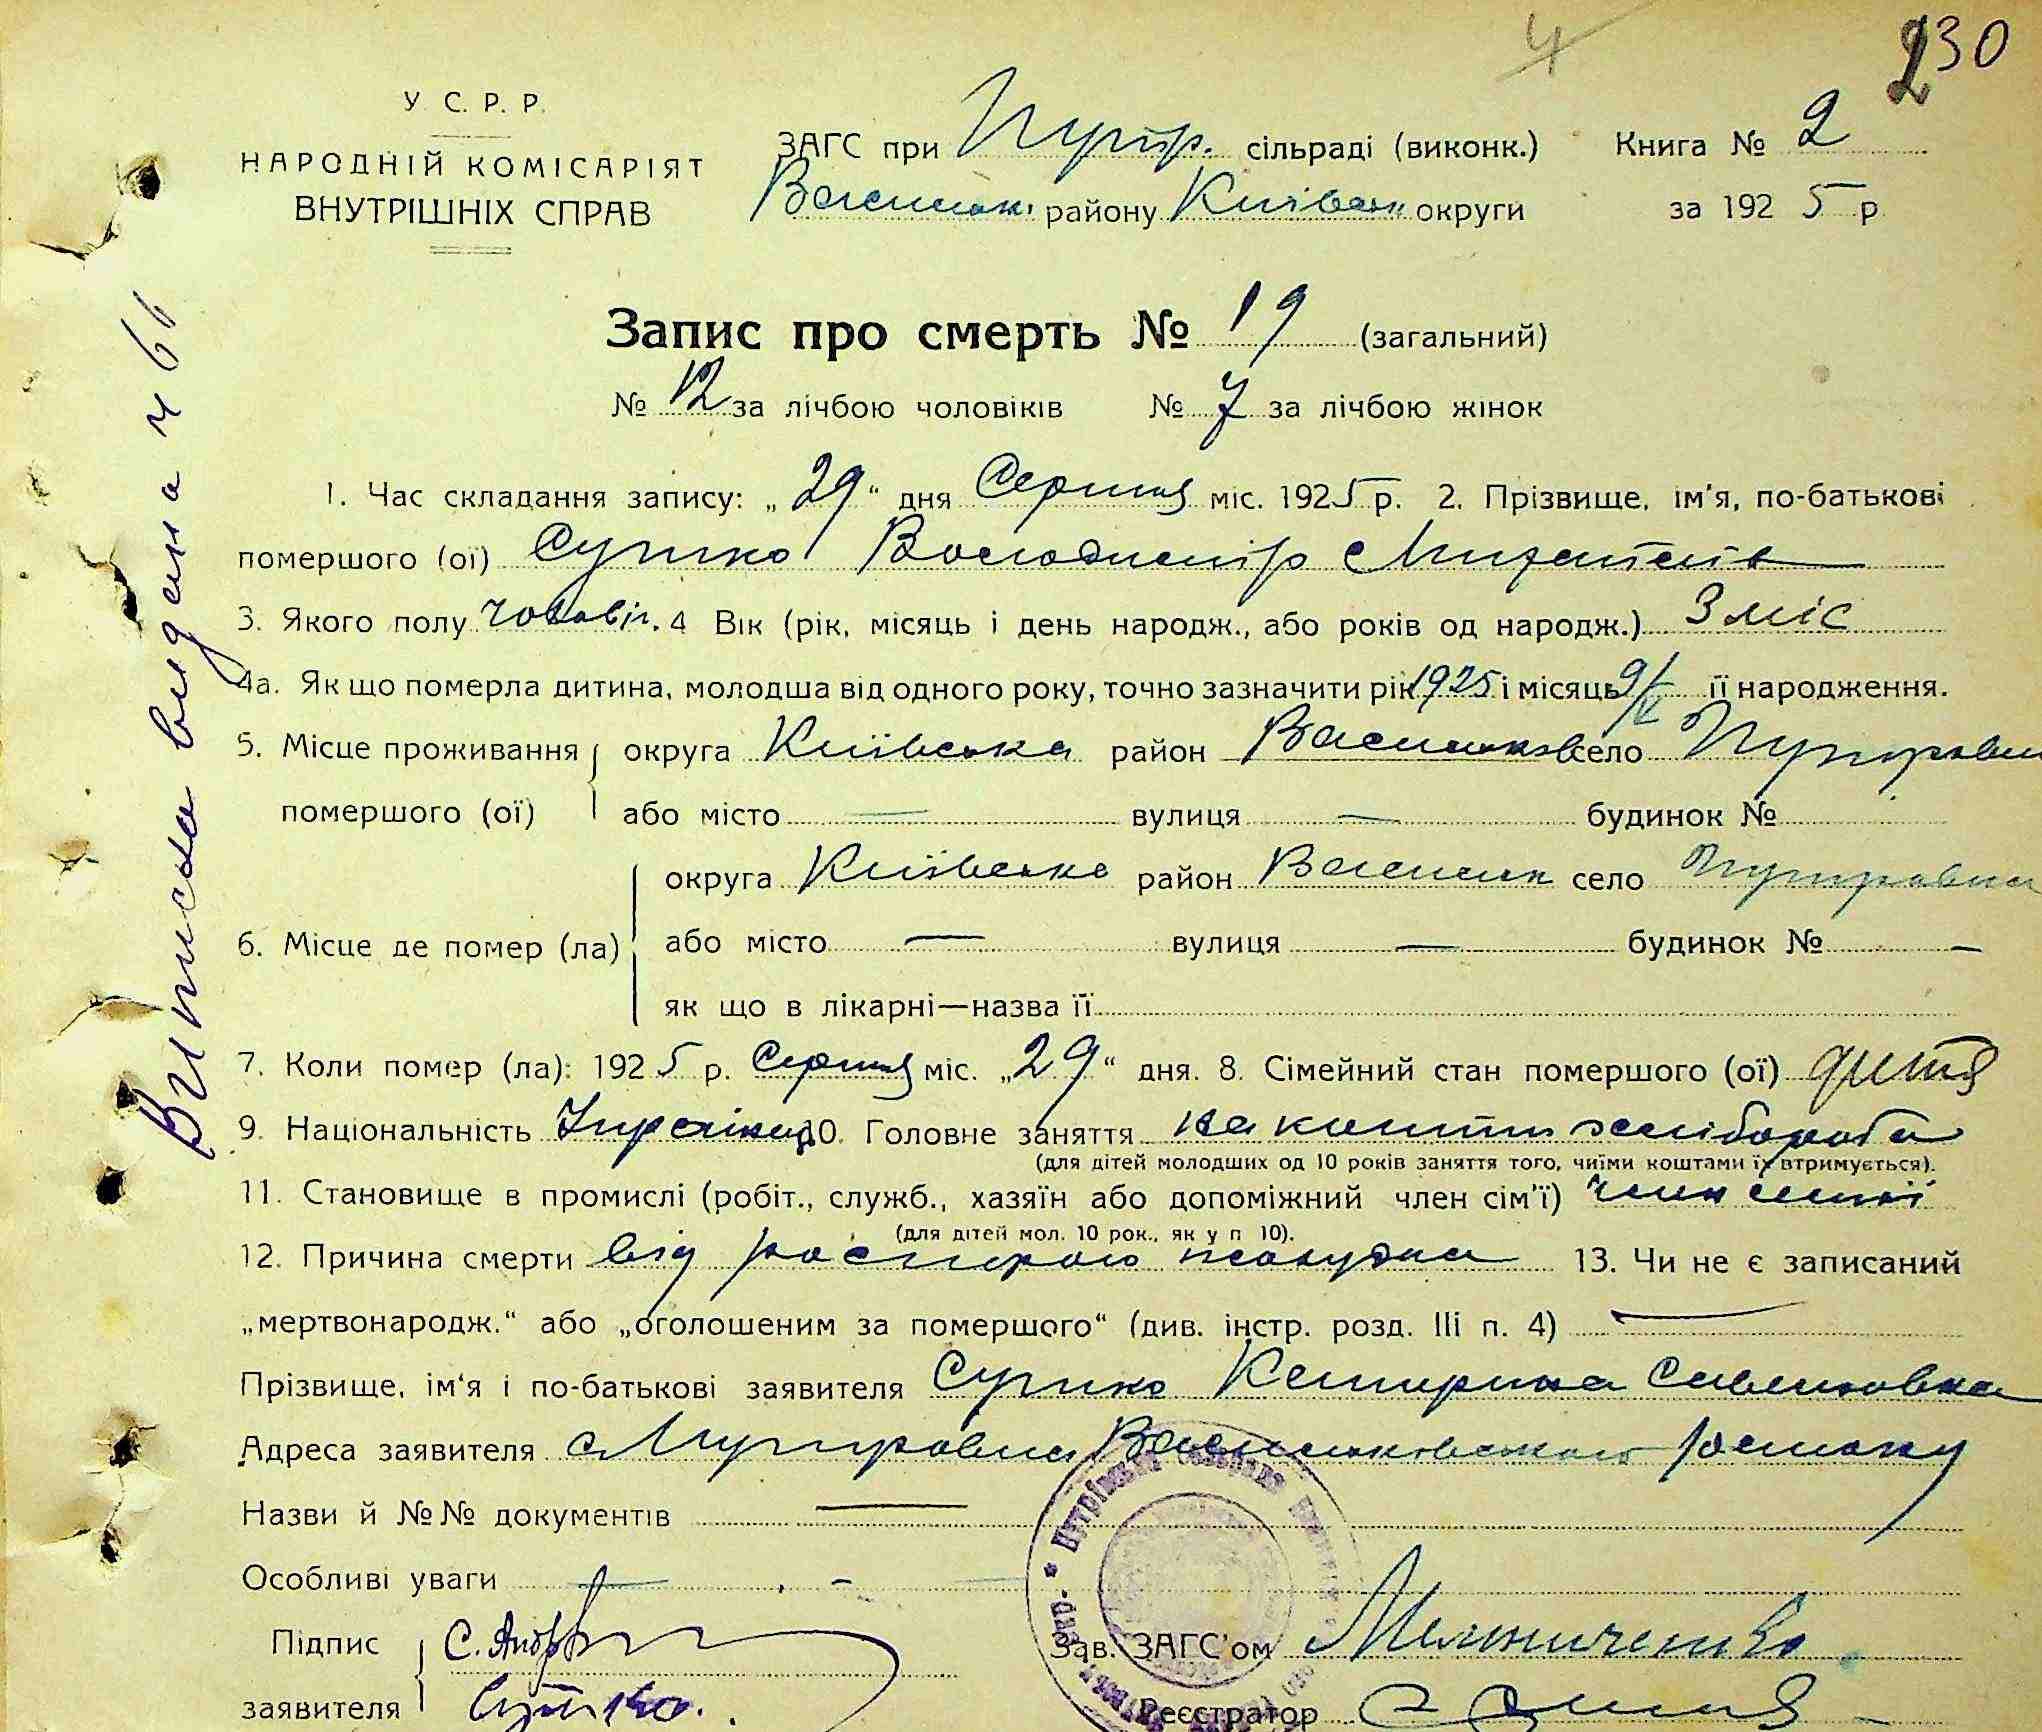 4 230
У. С. Р. Р.
НАРОДНІЙ КОМІСАРІЯТ
ВНУТРІШНІХ СПРАВ
ЗАГС при Путр. сільраді (виконк.) Книга № 2
району Київськ округи за 1925 р.
Запис про смерть № 19 (загальний)
№ 12 за лічбою чоловіків № 7 за лічбою жінок
1. Час складання запису: „29“ дня Серпня міс. 1925 р. 2. Прізвище, ім'я, по-батькові
помершого (ої) Сутко Володимір
3. Якого полу чоловіч. 4 Вік (рік, місяць і день народж., або років од народж.) 3 міс
4а. Як що померла дитина, молодша від одного року, точно зазначити рік 1925 і місяць 9/V її народження.
5. Місце проживання округа Київська район Васильков село Путровка
помершого (ої) або місто — вулиця — будинок №
округа Київська район Васильк село Путровка
6. Місце де помер (ла) або місто — вулиця — будинок № —
як що в лікарні—назва її
7. Коли помер (ла): 1925 р. Серпня міс. „29“ дня. 8. Сімейний стан помершого (ої) дитя
9. Національність 10. Головне заняття на кошти хлібороба
(для дітей молодших од 10 років заняття того, чиїми коштами їх втримується).
11. Становище в промислі (робіт., служб., хазяїн або допоміжний член сім'ї) член сімї
(для дітей мол. 10 рок., як у п 10).
12. Причина смерти від желудка 13. Чи не є записаний
„мертвонародж.“ або „оголошеним за помершого“ (див. інстр. розд. III п. 4) —
Прізвище, ім'я і по-батькові заявителя Сутко Катерина
Адреса заявителя с Путровка Васильковского району
Назви й №№ документів —
Особливі уваги — . –
Підпис С.
Зав. ЗАГС'ом Мельниченко
заявителя Сутко.
Реєстратор
Виписка видана ч 66